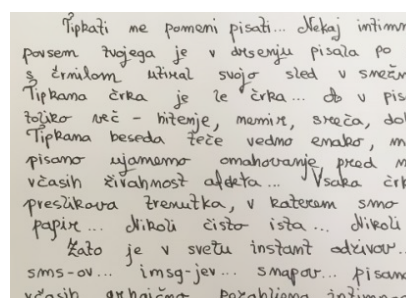 Tipkati ne pomeni pisati... Nekaj intimn
povsem tvojega je v drsenju pisala po
s črnilom utiral svojo sled v snežn
Tipkana črka je le črka... ob v pis
toliko več - hitenje, nemir, sreča, dol
Tipkana beseda teče vedno enako, m
pisano ujamemo omahovanje pred n
včasih živahnost afekta... Vsaka črk
preslikava trenutka, v katerem smo
papir... Nikoli čisto ista... Nikoli
Zato je v svetu instant odzivov...
sms-ov... imsg-jev... snapov... pisano
včasih arhaično pozabljeno intimno